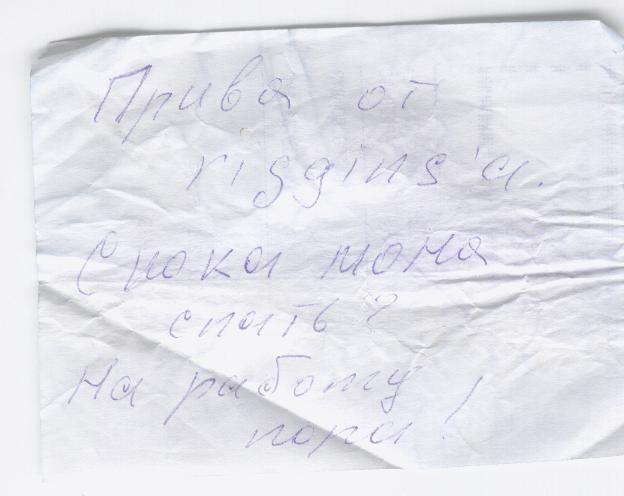 Прива от
riggins'а.
Скока мона
спать?
На работу
пора!